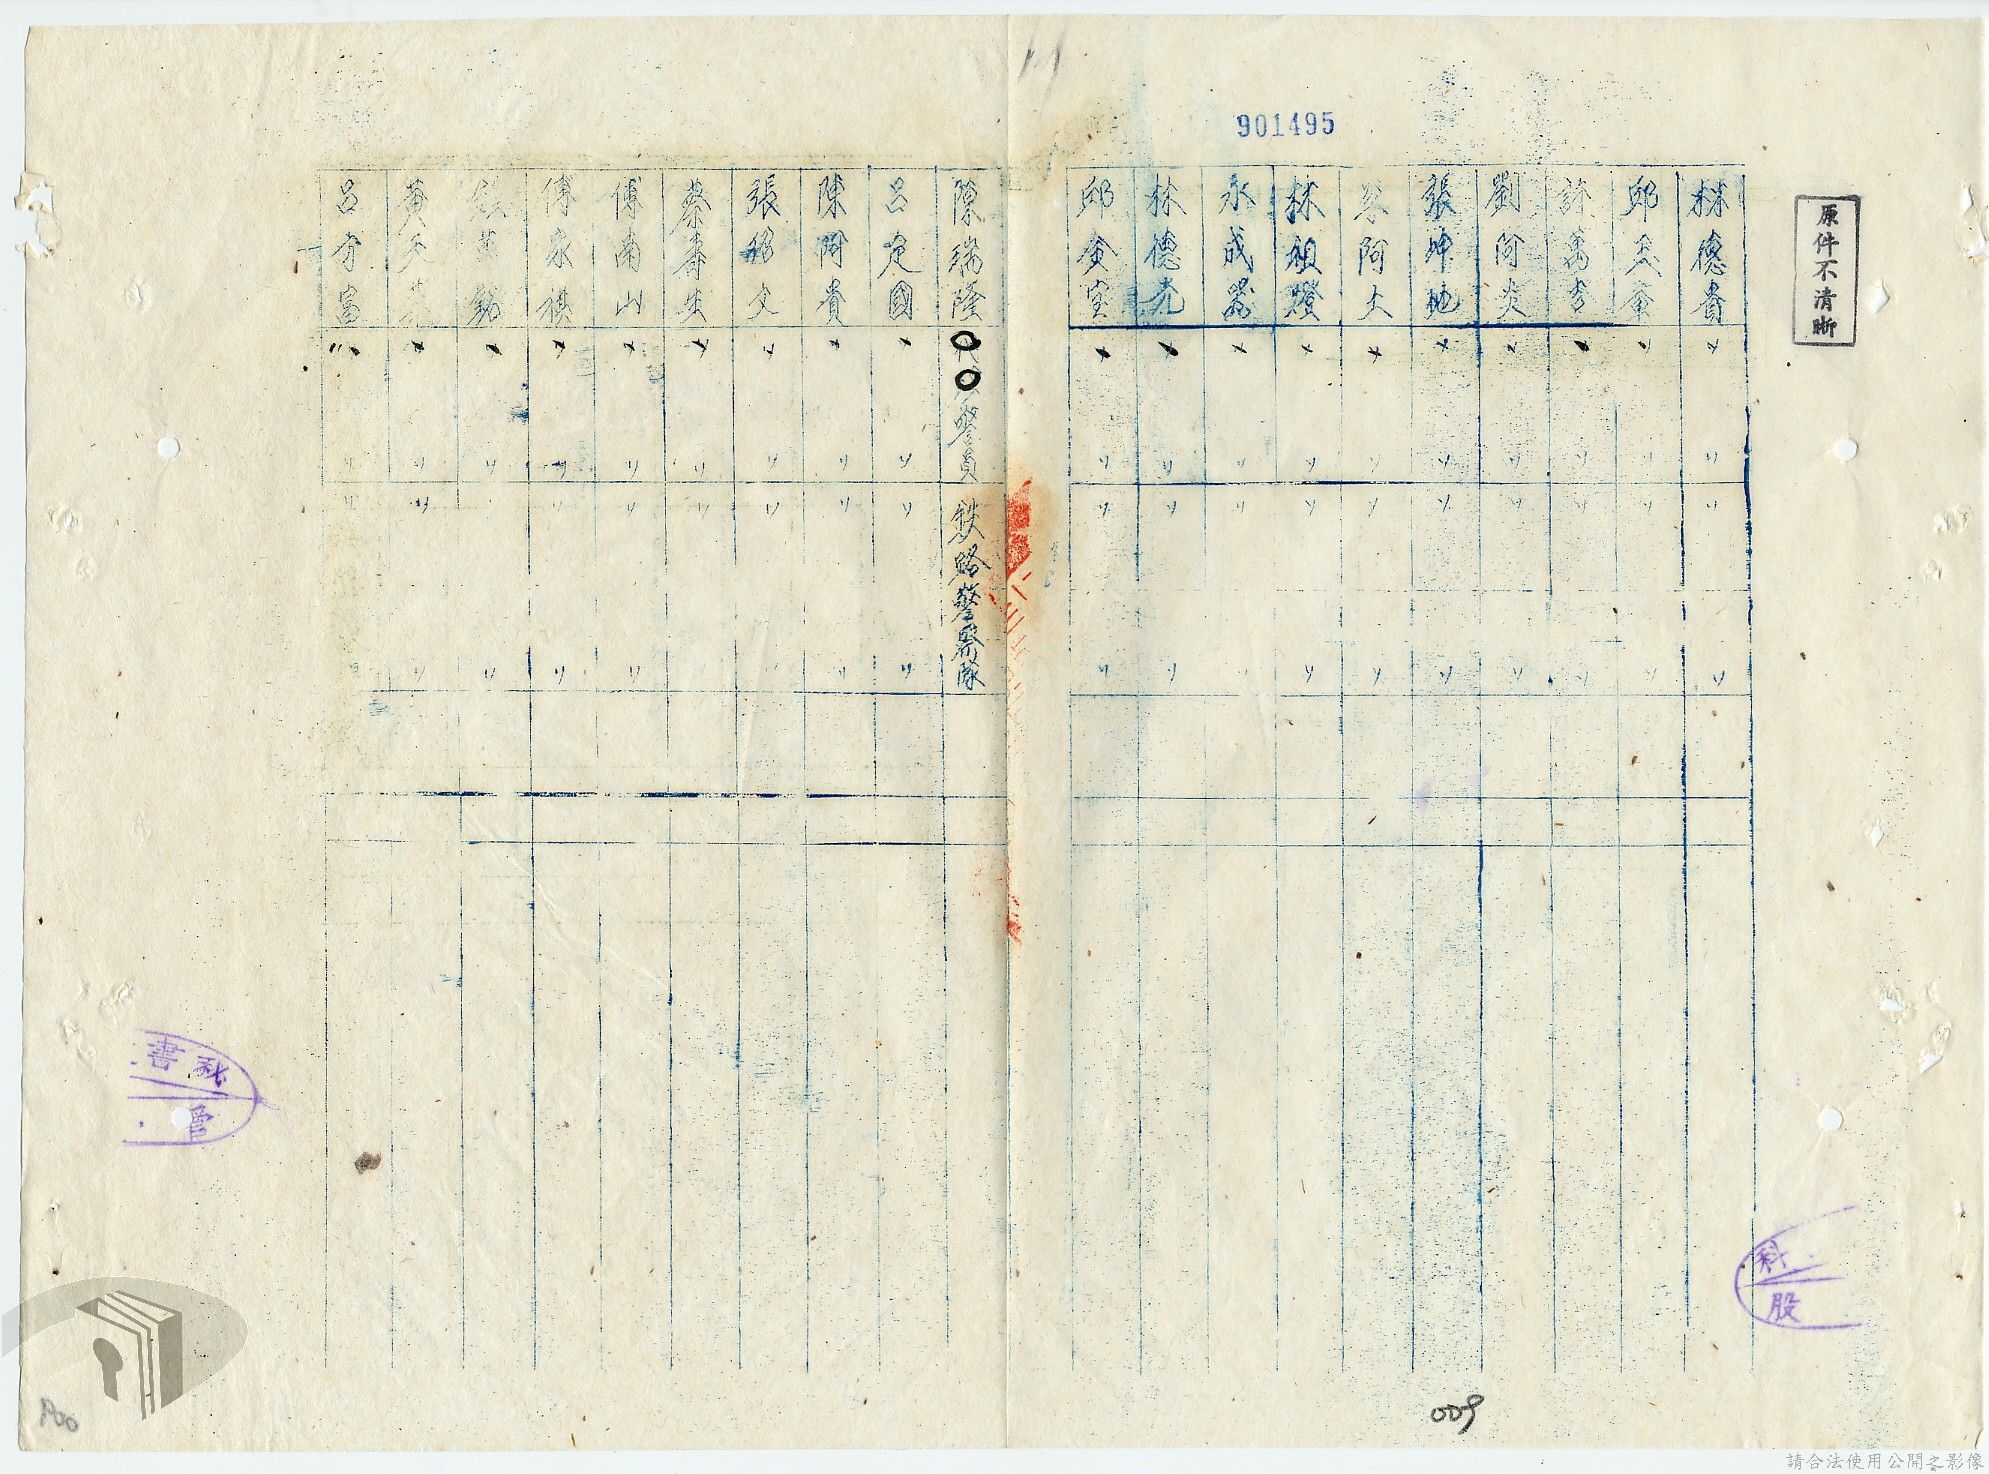 901495
原件不清晰
林德貴 〃 〃 〃 〃
邱玉章 〃 〃 〃 〃
許萬吉 〃 〃 〃 〃
劉阿炎 〃 〃 〃 〃
張坤地 〃 〃 〃 〃
阿大 〃 〃 〃 〃
林祖燈 〃 〃 〃 〃
永成器 〃 〃 〃 〃
林德光 〃 〃 〃 〃
邱金宝 〃 〃 〃 〃
陳瑞隆 〇〇 警員 鉄路警察隊
呂定國 〃 〃 〃 〃
陳阿貴 〃 〃 〃 〃
張紹文 〃 〃 〃 〃
蔡壽生 〃 〃
傅南山 〃 〃 〃 〃
傅家祺 〃 〃 〃 〃
銘 〃 〃 〃 〃
黃天 〃 〃 〃 〃
呂方富 〃 〃 〃
科
股
秘書
管
009
請合法使用公開之影像